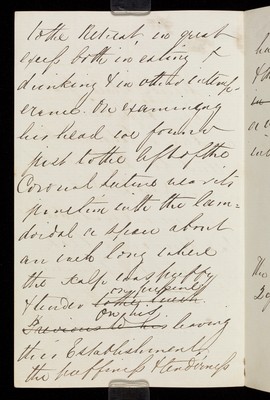 to the Retreat, in great
excess both in eating &
drinking & in other intemp-
erance. On examining
his head we found
just to the left of the
Coronal Suture near its
junction with the lam=
doidal a space about
an inch long where
the scalp was puffy
& tender on pressure
On his leaving
this Establishment
the puffiness & tenderness